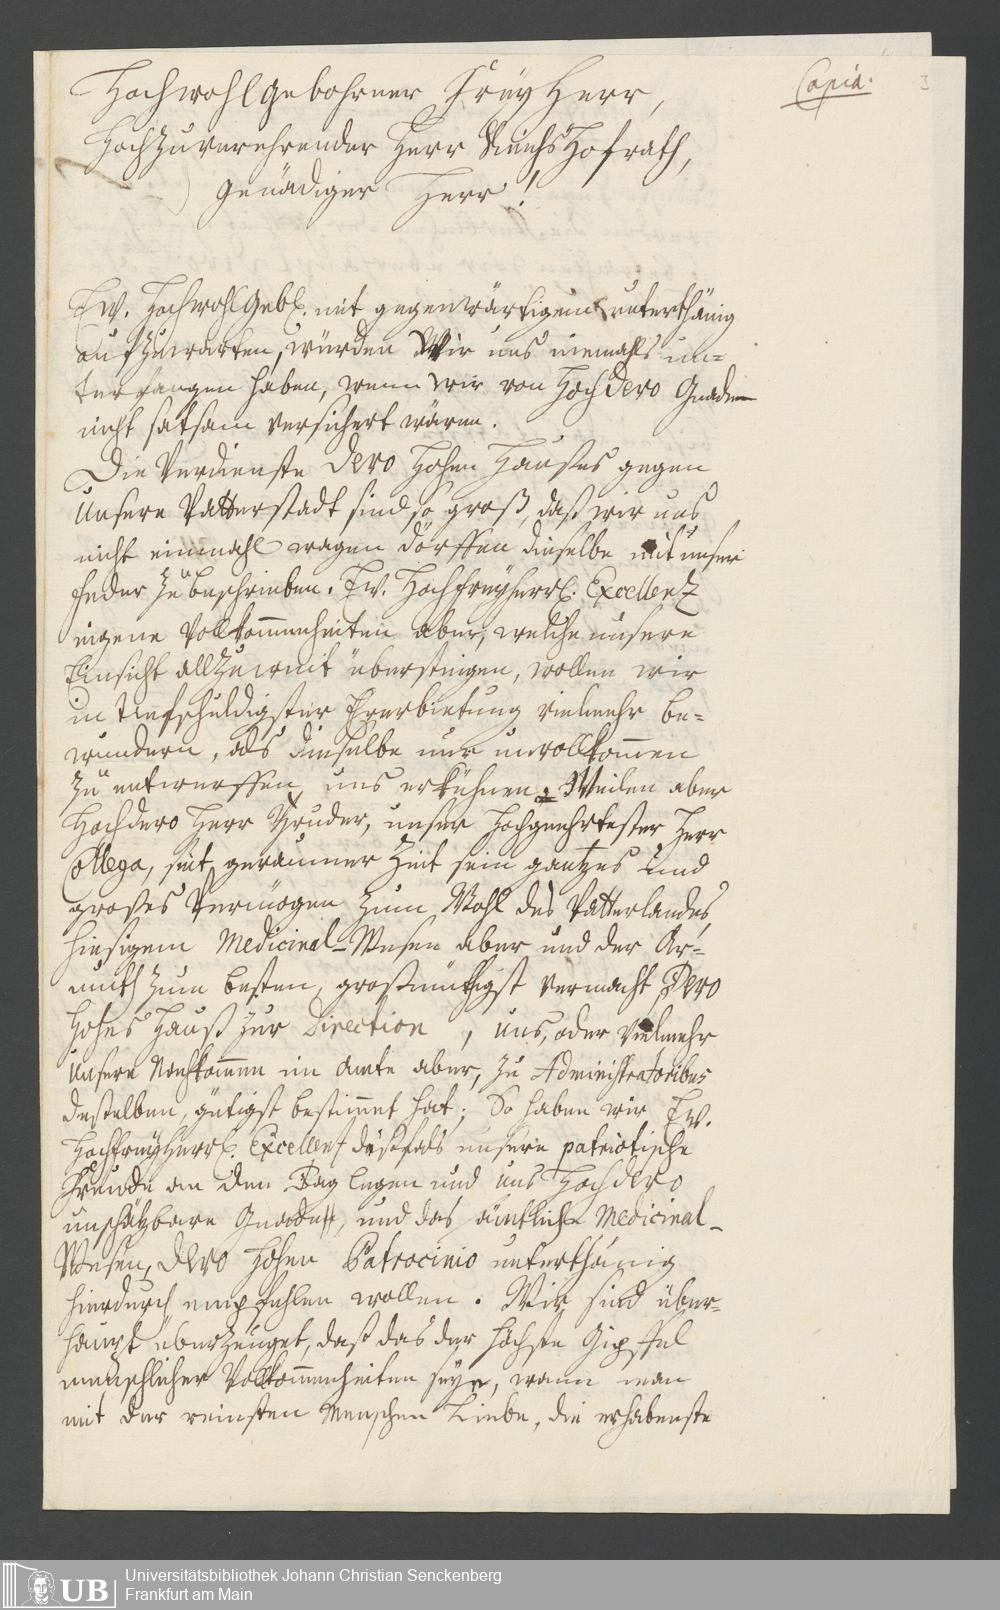 Copia.
3
Hochwohlgebohrner Freÿ Herr,
Hochzuverehrender Herr ReichsHofrath,
Genädiger Herr!
Ew. Hochwohlgebl. mit gegenwärtigem unterthänig
aufzuwarten, würden Wir uns niemahls un-
terfangen haben, wenn wir von Hoch Dero Gnaden
nicht satsam versichert wären.
Die Verdienste Dero Hohen Haußes gegen
unsere Vatterstadt sind so groß, daß wir uns
nicht einmahl wagen dörffen dieselbe mit unser
Feder zu beschreiben. Ew. Hochfreÿherrl. Excellenz
eigene Vollkommenheiten aber, welche unsere
Einsicht allzuweit übersteigen, wollen wir
in tiefschuldigster Ererbietung vielmehr be-
wundern, als dieselbe nur unvollkommen
zu entwerffen, uns erkühnen. Weilen aber
Hochdero Herr Bruder, unser Hochgeehrtester Herr
Collega, seit geraumer Zeit sein gantzes und
großes Vermögen zum Wohl des Vatterlandes,
hiesigem Medicinal-Wesen aber und der Ar-
muth zum besten, großmüthigst vermacht, Dero
Hohes Hauß zur Direction, uns, oder vielmehr
unsere Nachkommen im Amte aber, zu Administratoribus
desselben, gütigst bestimmet hat; So haben wir Ew.
Hochfreÿherrl. Excellenz dißfals unsere patriotische
Freude an den Tag legen und uns Hochdero
unschätzbare Gnaden, und das sämtliche Medicinal-
Wesen, Dero Hohen Patrocinio unterthänig
hierdurch empfehlen wollen. Wir sind über-
haupt überzeuget, daß das der höchste Gipffel
menschlicher Vollkommenheiten seye, wann man
mit der reinsten Menschen Liebe, die erhabenste
UB
Universitätsbibliothek Johann Christian Senckenberg
Frankfurt am Main